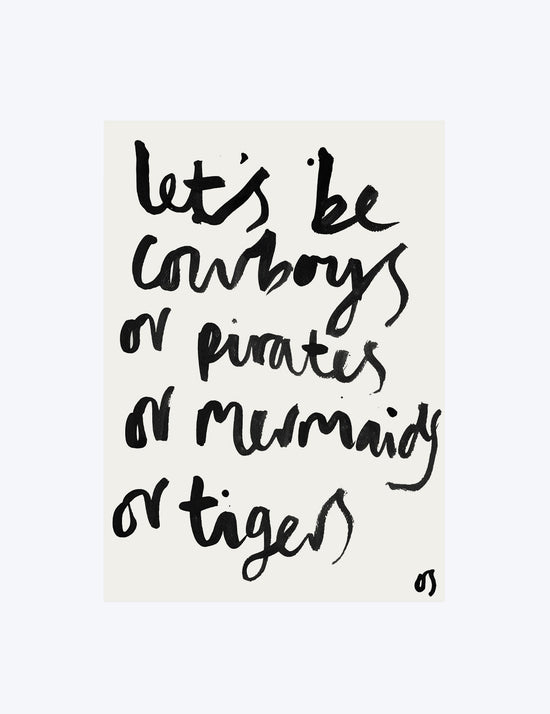 let's be
cowboys
or pirates
or mermaids
or tigers